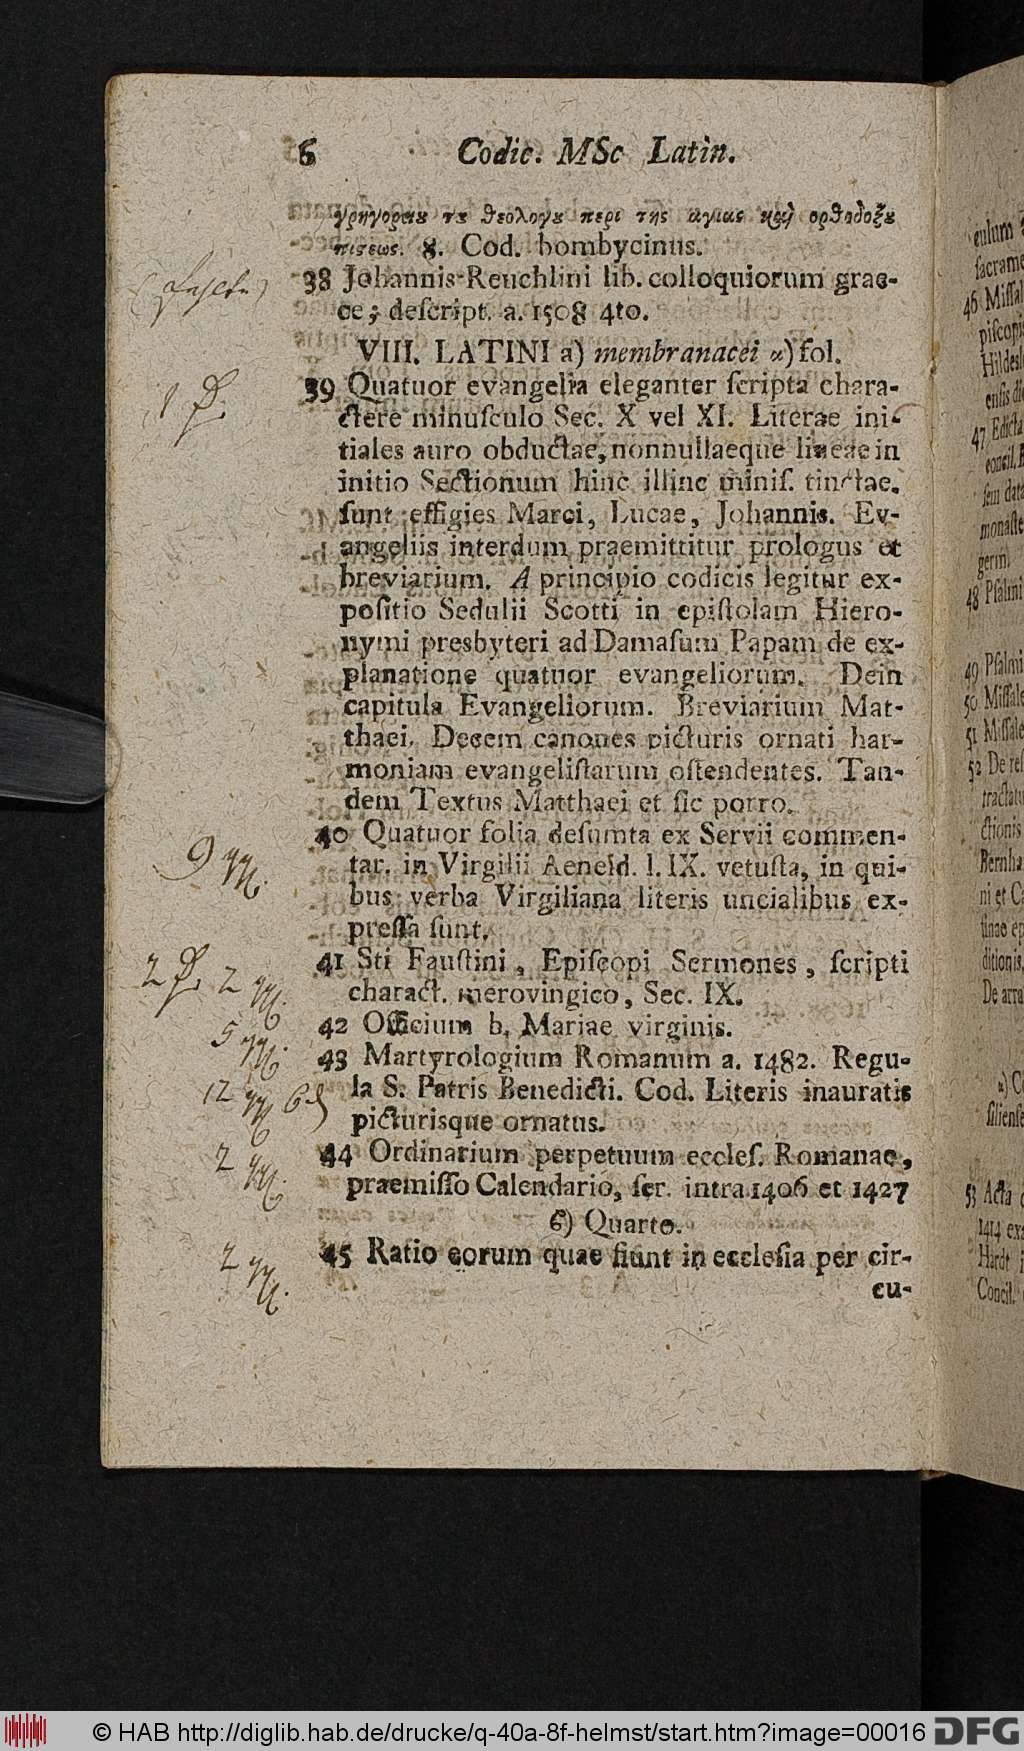 6 Codic. MSc Latin.
γρηγοριου του θεολογου περι της αγιας και ορθοδοξου
πιστεως. 8. Cod. bombycinus.
38 Johannis Reuchlini lib. colloquiorum grae-
ce; deſcript. a. 1508 4to.
VIII. LATINI a) membranacei α) fol.
1
39 Quatuor evangelia eleganter ſcripta chara-
ctere minuſculo Sec. X vel XI. Literae ini-
tiales auro obductae, nonnullaeque lineae in
initio Sectionum hinc illinc miniſ. tinctae.
ſunt effigies Marci, Lucae, Johannis. Ev-
angeliis interdum praemittitur prologus et
breviarium. A principio codicis legitur ex-
poſitio Sedulii Scotti in epiſtolam Hiero-
nymi presbyteri ad Damaſum Papam de ex-
planatione quatuor evangeliorum. Dein
capitula Evangeliorum. Breviarium Mat-
thaei. Decem canones picturis ornati har-
moniam evangeliſtarum oſtendentes. Tan-
dem Textus Matthaei et ſic porro.
9
40 Quatuor folia deſumta ex Servii commen-
tar. in Virgilii Aeneid. l. IX. vetuſta, in qui-
bus verba Virgiliana literis uncialibus ex-
preſſa ſunt.
2 2
41 Sti Fauſtini, Epiſcopi Sermones, ſcripti
charact. merovingico, Sec. IX.
5
42 Officium b. Mariae virginis.
43 Martyrologium Romanum a. 1482. Regu-
12 6
la S. Patris Benedicti. Cod. Literis inauratis
picturisque ornatus.
2
44 Ordinarium perpetuum eccleſ. Romanae,
praemiſſo Calendario, ſcr. intra 1406 et 1427
6) Quarto.
2
45 Ratio eorum quae fiunt in eccleſia per cir-
cu-
culum
ſacrame
46 Miſſal
piſcopi
Hildesh
enſis di
47 Edicta
concil.
ſem data
monaſte
germ.
48 Pſalmi
49 Pſalmi
50 Miſſale
51 Miſſale
52 De reſ
tractatu
ctionis
Bernha
ni et C
ſinae ep
ditionis
De arra
53 Acta
1414 ex
Hardt
Concil.
© HAB http://diglib.hab.de/drucke/q-40a-8f-helmst/start.htm?image=00016
DFG